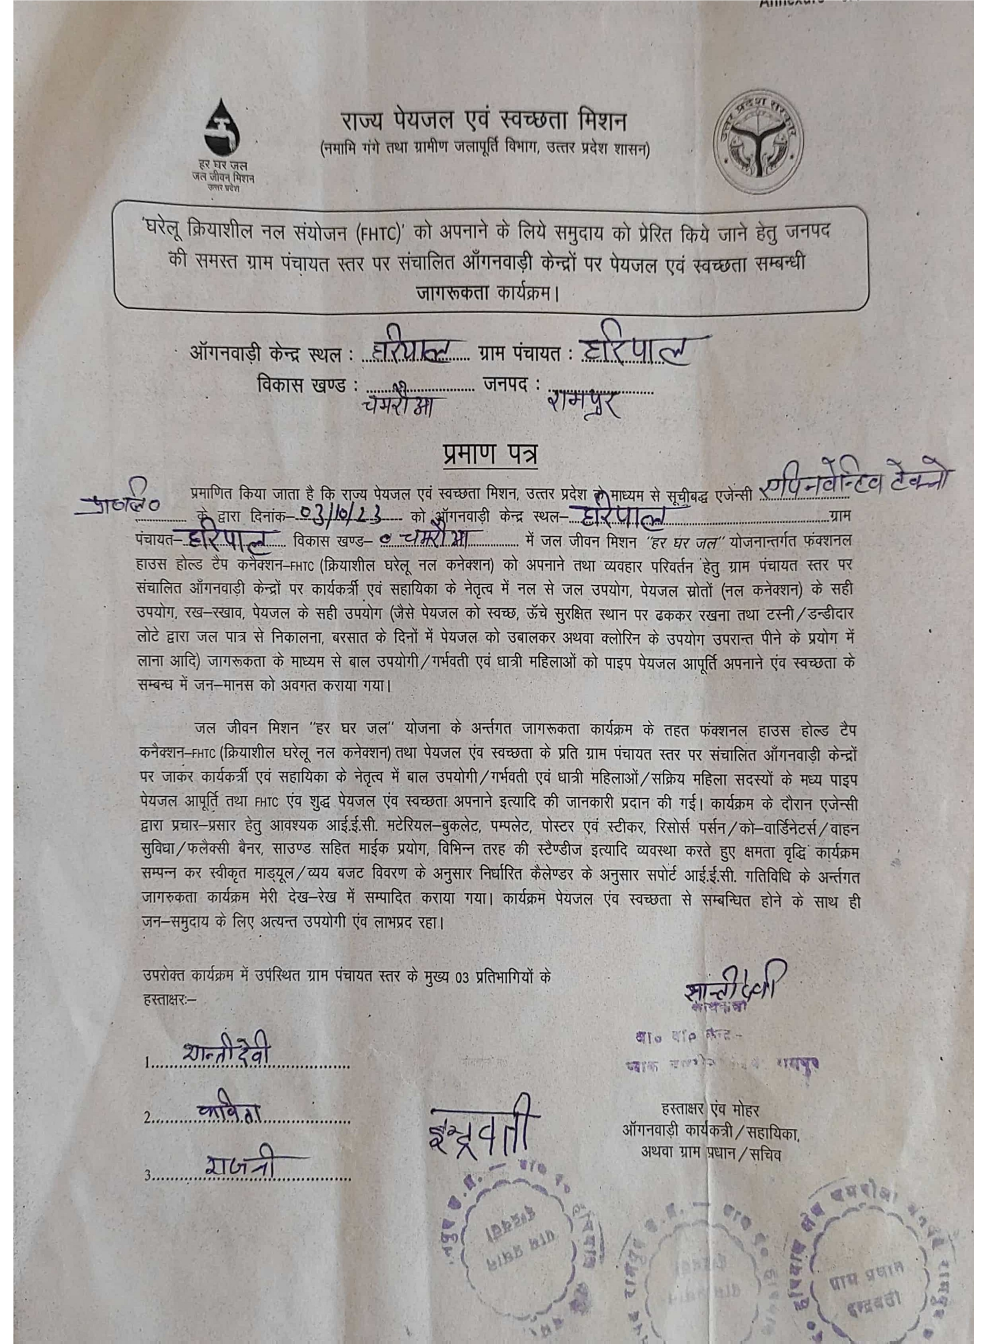 हर घर जल
जल जीवन मिशन
उत्तर प्रदेश
राज्य पेयजल एवं स्वच्छता मिशन
(नमामि गंगे तथा ग्रामीण जलापूर्ति विभाग, उत्तर प्रदेश शासन)
उत्तर प्रदेश सरकार
'घरेलू क्रियाशील नल संयोजन (FHTC)' को अपनाने के लिये समुदाय को प्रेरित किये जाने हेतु जनपद
की समस्त ग्राम पंचायत स्तर पर संचालित आँगनवाड़ी केन्द्रों पर पेयजल एवं स्वच्छता सम्बन्धी
जागरूकता कार्यक्रम।
ऑगनवाड़ी केन्द्र स्थल : हरिपाल ग्राम पंचायत : हरिपाल
विकास खण्ड : चमरौआ जनपद : रामपुर
प्रमाण पत्र
प्रमाणित किया जाता है कि राज्य पेयजल एवं स्वच्छता मिशन, उत्तर प्रदेश के माध्यम से सूचीबद्ध एजेन्सी
के द्वारा दिनांक- 03/10/23 को ऑगनवाड़ी केन्द्र स्थल- हरिपाल ग्राम
पंचायत- हरिपाल विकास खण्ड- चमरौआ में जल जीवन मिशन "हर घर जल" योजनान्तर्गत फंक्शनल
हाउस होल्ड टैप कनैक्शन-FHTC (क्रियाशील घरेलू नल कनेक्शन) को अपनाने तथा व्यवहार परिवर्तन हेतु ग्राम पंचायत स्तर पर
संचालित आँगनवाड़ी केन्द्रों पर कार्यकर्त्री एवं सहायिका के नेतृत्व में नल से जल उपयोग, पेयजल स्रोतों (नल कनेक्शन) के सही
उपयोग, रख-रखाव, पेयजल के सही उपयोग (जैसे पेयजल को स्वच्छ, ऊँचे सुरक्षित स्थान पर ढककर रखना तथा टस्नी/डन्डीदार
लोटे द्वारा जल पात्र से निकालना, बरसात के दिनों में पेयजल को उबालकर अथवा क्लोरिन के उपयोग उपरान्त पीने के प्रयोग में
लाना आदि) जागरूकता के माध्यम से बाल उपयोगी/गर्भवती एवं धात्री महिलाओं को पाइप पेयजल आपूर्ति अपनाने एंव स्वच्छता के
सम्बन्ध में जन-मानस को अवगत कराया गया।
जल जीवन मिशन "हर घर जल" योजना के अर्न्तगत जागरूकता कार्यक्रम के तहत फंक्शनल हाउस होल्ड टैप
कनैक्शन-FHTC (क्रियाशील घरेलू नल कनेक्शन) तथा पेयजल एंव स्वच्छता के प्रति ग्राम पंचायत स्तर पर संचालित आँगनवाड़ी केन्द्रों
पर जाकर कार्यकर्त्री एवं सहायिका के नेतृत्व में बाल उपयोगी/गर्भवती एवं धात्री महिलाओं/सक्रिय महिला सदस्यों के मध्य पाइप
पेयजल आपूर्ति तथा FHTC एंव शुद्ध पेयजल एंव स्वच्छता अपनाने इत्यादि की जानकारी प्रदान की गई। कार्यक्रम के दौरान एजेन्सी
द्वारा प्रचार-प्रसार हेतु आवश्यक आई.ई.सी. मटेरियल-बुकलेट, पम्पलेट, पोस्टर एवं स्टीकर, रिसोर्स पर्सन/को-वार्डिनेटर्स/वाहन
सुविधा/फलैक्सी बैनर, साउण्ड सहित माईक प्रयोग, विभिन्न तरह की स्टैण्डीज इत्यादि व्यवस्था करते हुए क्षमता वृद्धि कार्यक्रम
सम्पन्न कर स्वीकृत माड्यूल/व्यय बजट विवरण के अनुसार निर्धारित कैलेण्डर के अनुसार सपोर्ट आई.ई.सी. गतिविधि के अर्न्तगत
जागरुकता कार्यक्रम मेरी देख-रेख में सम्पादित कराया गया। कार्यक्रम पेयजल एंव स्वच्छता से सम्बन्धित होने के साथ ही
जन-समुदाय के लिए अत्यन्त उपयोगी एंव लाभप्रद रहा।
उपरोक्त कार्यक्रम में उपस्थित ग्राम पंचायत स्तर के मुख्य 03 प्रतिभागियों के
हस्ताक्षरः-
शान्तीदेवी
1. शान्तीदेवी
2. कविता
3.
इन्द्रवती
हस्ताक्षर एंव मोहर
ऑगनवाड़ी कार्यकत्री/सहायिका,
अथवा ग्राम प्रधान/सचिव
ग्राम प्रधान
इन्द्रवती